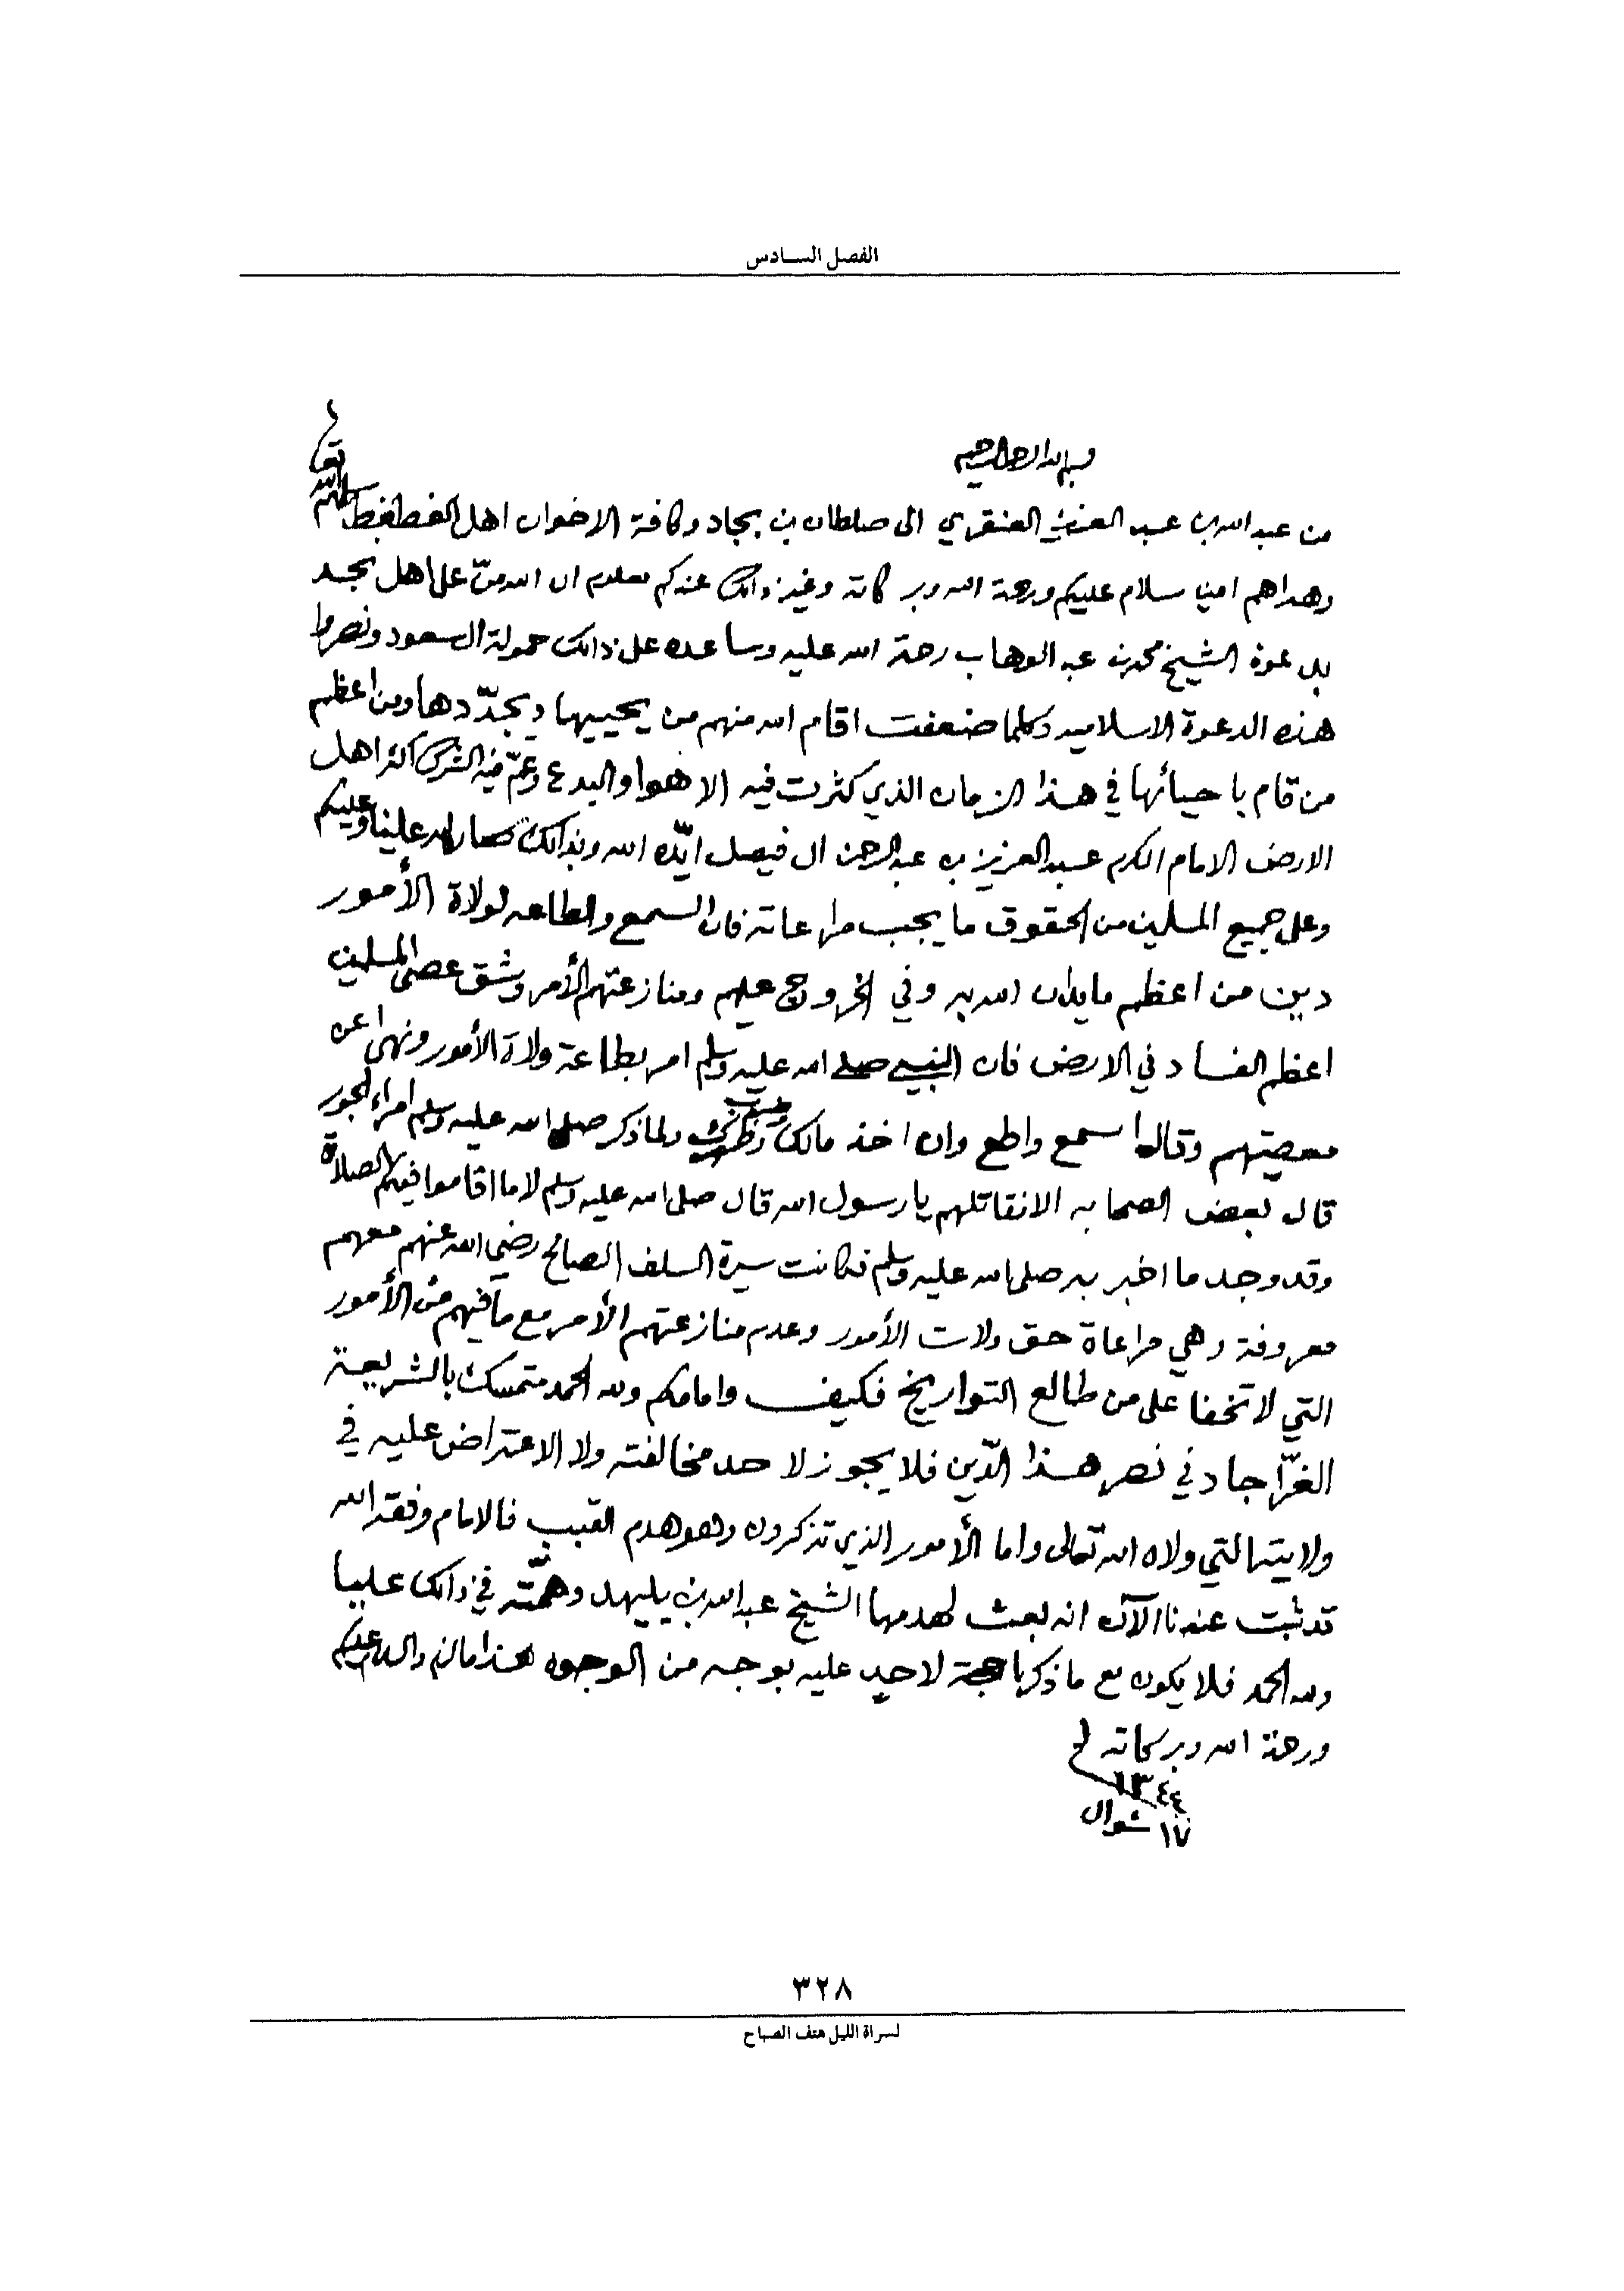 الفصل السادس
بسم الله الرحمن الرحيم
من عبد الله بن عبد العزيز العنقري الى صلطان بن بجاد وكافة الاخوان اهل الغطغط سلمهم الله تعالى
وهداهم امين سلام عليكم ورحمة الله وبركاته وغير ذالك عندكم معلوم ان الله منّ على اهل نجد
بدعوة الشيخ محمد بن عبد الوهاب رحمة الله عليه وساعده على ذالك حمولة ال سعود ونصروا
هذه الدعوة الاسلاميه وكلما ضعفت اقام الله منهم من يحييها ويجدّدها ومن اعظم
من قام باحيائها في هذا الزمان الذي كثرت فيه الاهوا والبدع وعمّ فيه الشرك اكثر اهل
الارض الامام المكرم عبد العزيز بن عبد الرحمن ال فيصل ايّده الله وبذالك صار له علينا وعليكم
وعلى جميع المسلمين من الحقوق ما يجب مراعاته فان السمع والطاعه لولاة الأمور
دين من اعظم ما يدان الله به وفي الخروج عليهم ومنازعتهم الأمر وشق عصى المسلمين
اعظم الفساد في الارض فان النبي صلى الله عليه وسلم امر بطاعة ولاة الأمور ونهى عن
معصيتهم وقال اسمع واطع وان اخذ مالك وضرب ظهرك ولما ذكر صلى الله عليه وسلم امراء الجور
قال بعض الصحابه الا نقاتلهم يا رسول الله قال صلى الله عليه وسلم لا ما اقاموا فيكم الصلاة
وقد وجد ما اخبر به صلى الله عليه وسلم فكانت سيرة السلف الصالح رضي الله عنهم معهم
معروفة وهي مراعاة حق ولات الأمور وعدم منازعتهم الأمر مع ما فيهم من الأمور
التي لا تخفا على من طالع التواريخ فكيف وامامكم ولله الحمد متمسك بالشريعة
الغرّا جاد في نصر هذا الدّين فلا يجوز لاحد مخالفته ولا الاعتراض عليه في
ولايته التي ولاه الله تعالى واما الأمور الذي تذكرون وهو هدم القبب فالامام وفقه الله
قد ثبت عندنا الآن انه بعث لهدمها الشيخ عبد الله بن بليهد وهمّته في ذالك عليا
ولله الحمد فلا يكون مع ما ذكرنا حجة لاحد عليه بوجه من الوجوه هذا ما لزم والسلام عليكم
ورحمة الله وبركاته
١٣٤٤
١٧ شوال
٣٢٨
لسراة الليل هتف الصباح